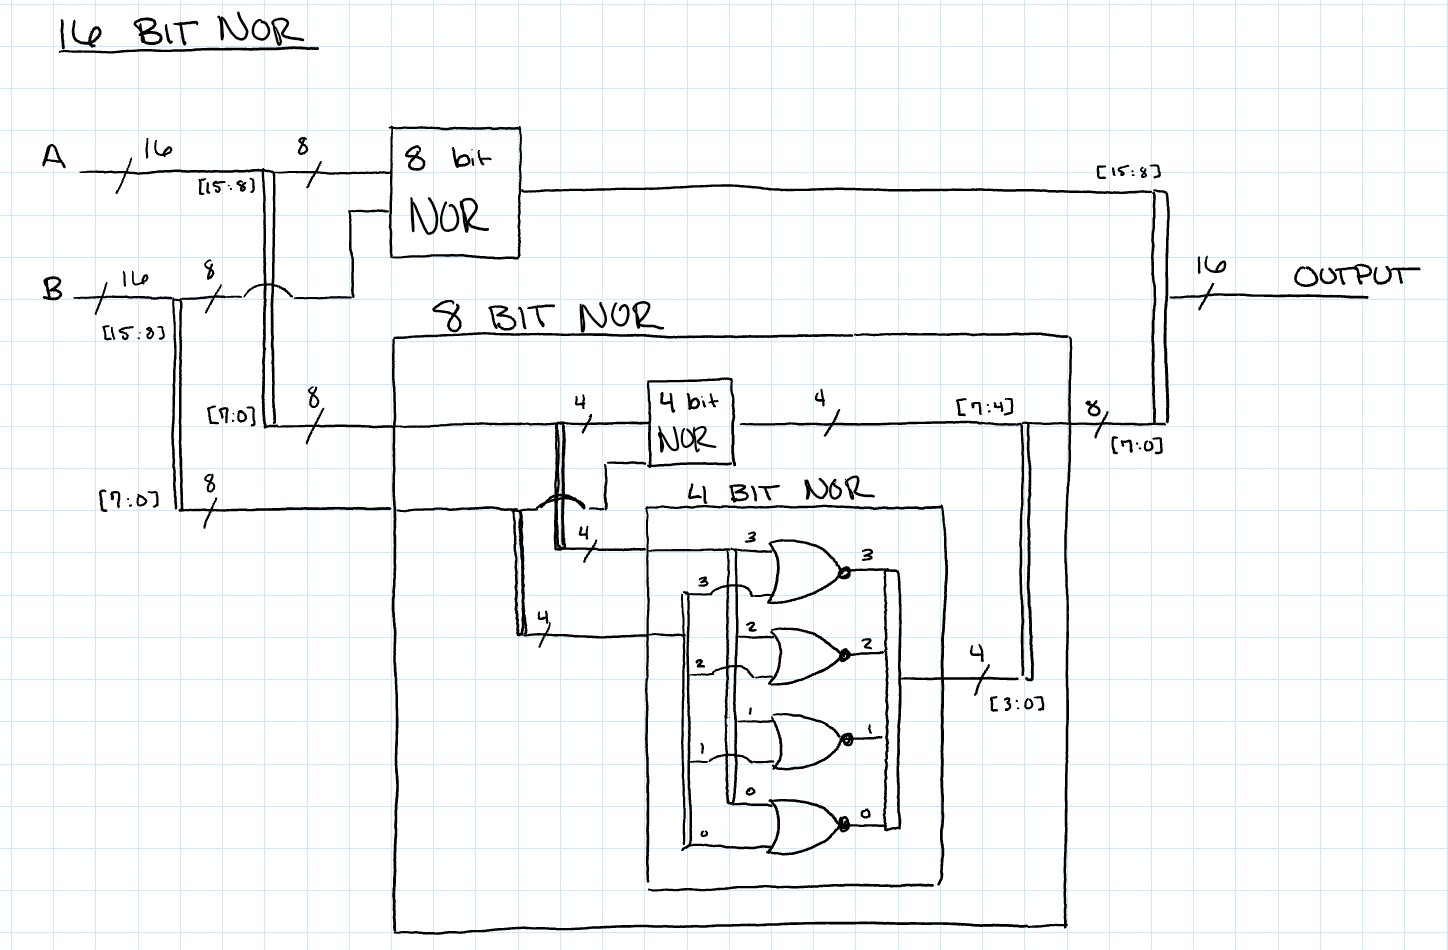 16 BIT NOR
A
16
[15:8]
8
8 bit
NOR
[15:8]
B
16
8
[15:8]
16
OUTPUT
8 BIT NOR
[7:0]
8
4
4 bit
NOR
4
[7:4]
8
[7:0]
[7:0]
8
4 BIT NOR
4
3
3
3
4
2
2
2
4
[3:0]
1
1
1
0
0
0